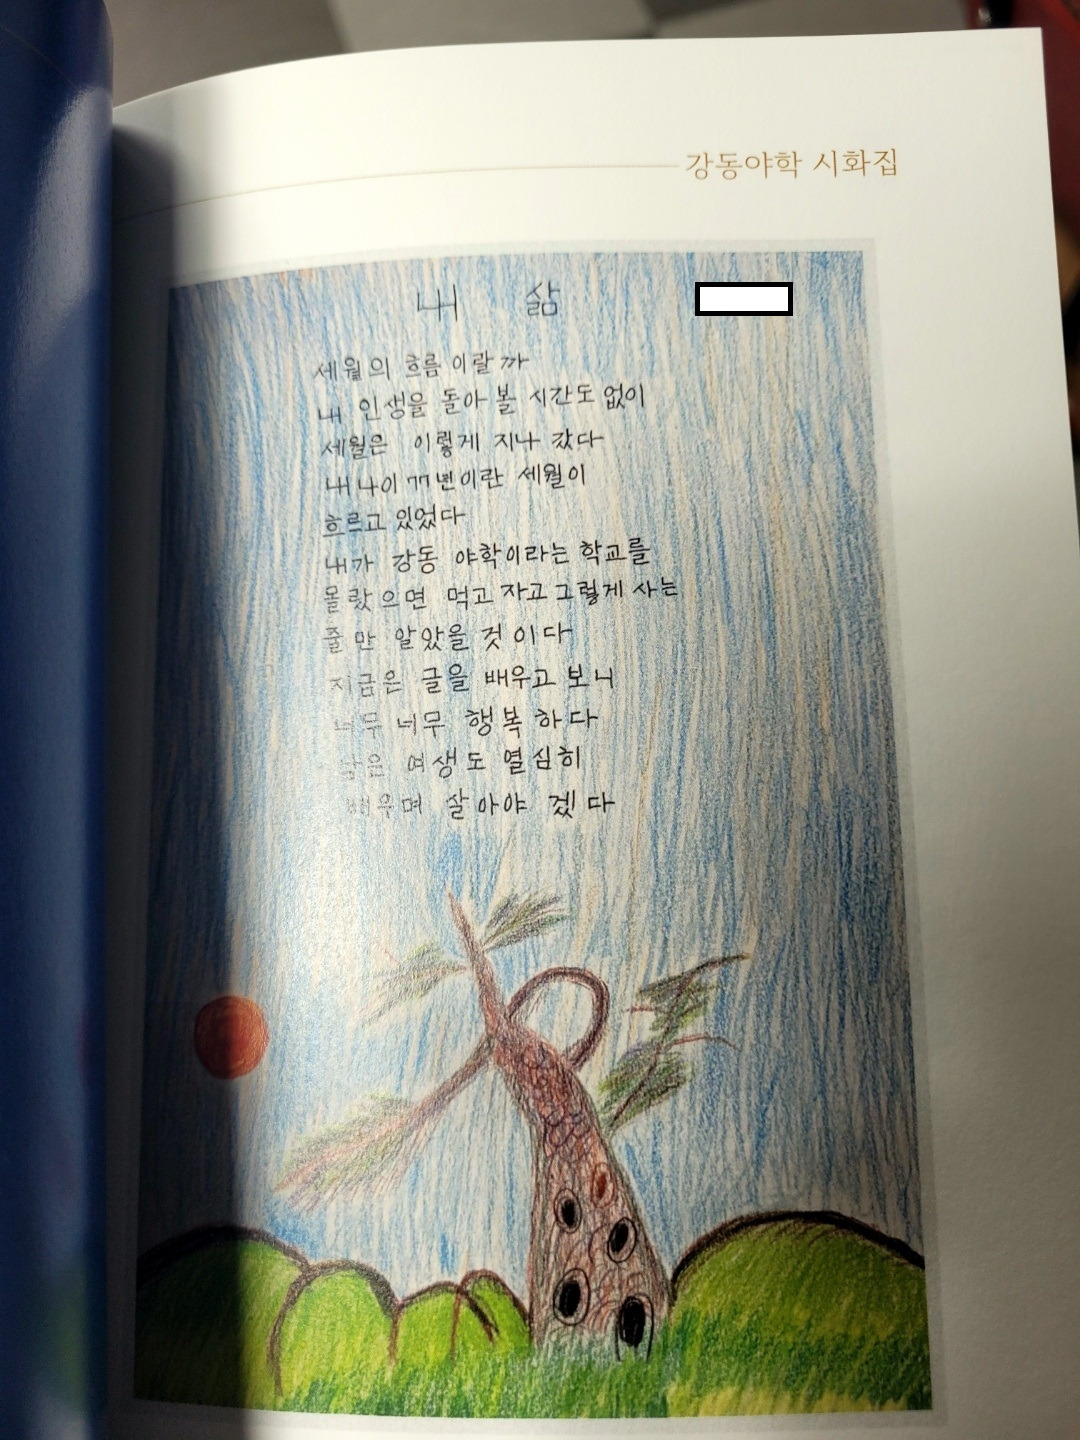 강동야학 시화집
내 삶
세월의 흐름 이랄 까
내 인생을 돌아 볼 시간도 없이
세월은 이렇게 지나 갔다
내 나이 77년이란 세월이
흐르고 있었다
내가 강동 야학이라는 학교를
몰랐으면 먹고 자고 그렇게 사는
줄 만 알았을 것 이다
지금은 글을 배우고 보니
너무 너무 행복 하다
남은 여생도 열심히
배우며 살아야 겠다